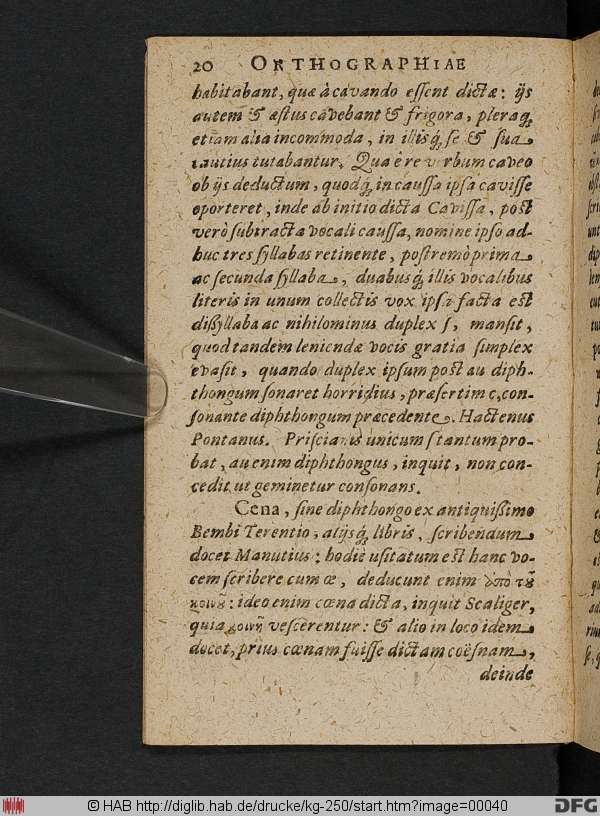 20 ORTHOGRAPHIAE
habitabant, quæ à cavando eſſent dictæ: ijs
autem & æſtus cavebant & frigora, pleraq;
etiam alia incommoda, in illisq́; ſe & ſua
tautius tutabantur. Qua è re verbum caveo
ob ijs deductum, quodq́; in cauſſa ipſa caviſſe
oporteret, inde ab initio dicta Caviſſa, poſt
verò ſubtracta vocali cauſſa, nomine ipſo ad-
huc tres ſyllabas retinente, poſtremò prima
ac ſecunda ſyllaba, duabusq́; illis vocalibus
literis in unum collectis vox ipſa facta eſt
diſſyllaba ac nihilominus duplex ſ, manſit,
quod tandem leniendæ vocis gratia ſimplex
evaſit, quando duplex ipſum poſt au diph-
thongum ſonaret horridius, præſertim c, con-
ſonante diphthongum præcedente. Hactenus
Pontanus. Priſcianis unicum ſ tantum pro-
bat, au enim diphthongus, inquit, non con-
cedit ut geminetur conſonans.
Cena, ſine diphthongo ex antiquiſſimo
Bembi Terentio, alijsq́; libris, ſcribendum
docet Manutius: hodiè uſitatum eſt hanc vo-
cem ſcribere cum œ, deducunt enim ἀπὸ τοῦ
κοινοῦ: ideo enim cœna dicta, inquit Scaliger,
quia κοινῇ veſcerentur: & alio in loco idem
docet, prius cœnam fuiſſe dictam coëſnam,
deinde
© HAB http://diglib.hab.de/drucke/kg-250/start.htm?image=00040
DFG